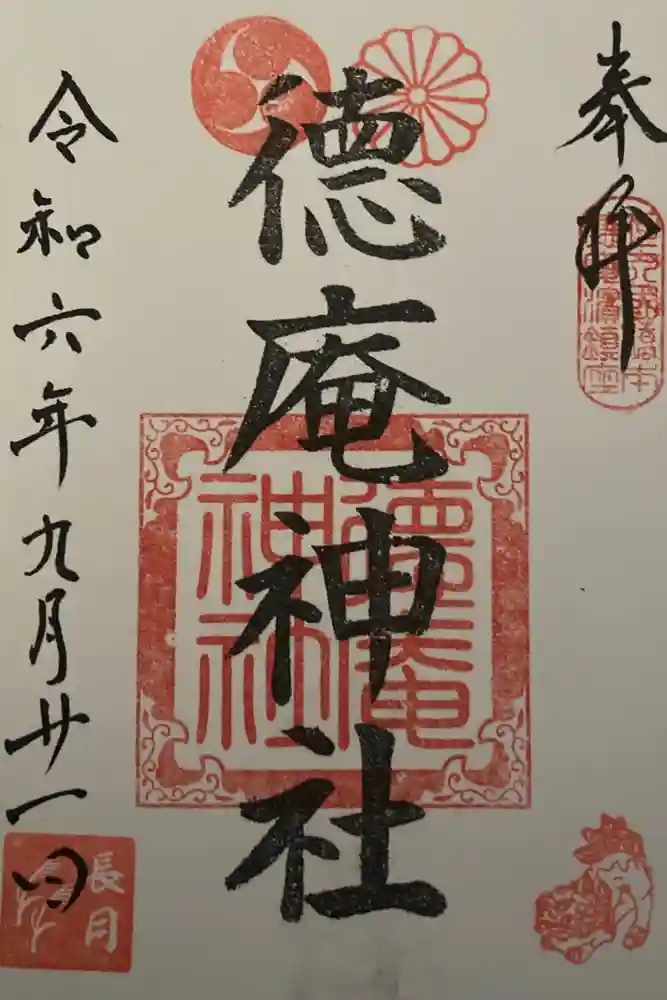 奉拝
德庵神社
德庵
神社
令和六年九月廿一日
長月